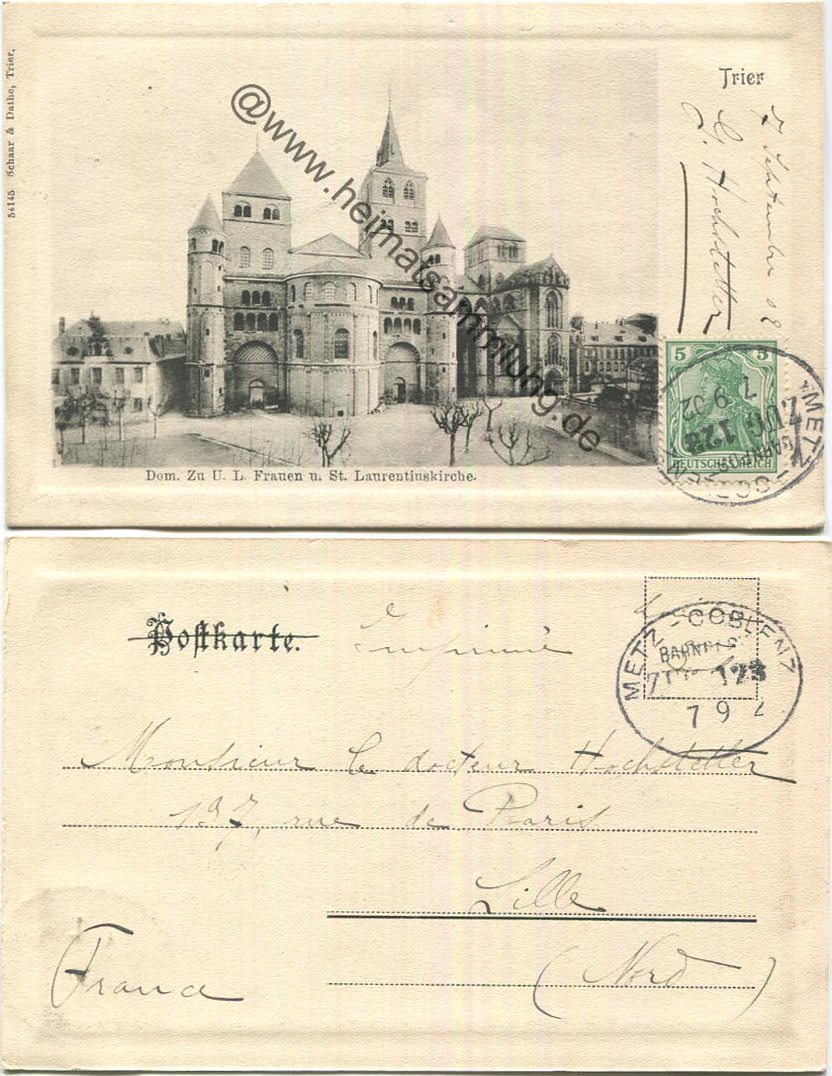 54145 Schaar & Dathe, Trier.
Trier
7 Septembre 02
G. Hochstetter
@www.heimatsammlung.de
5 5
DEUTSCHES REICH
METZ - COBLENZ
BAHNPOST
ZUG 123
7 9 02
Dom. Zu U. L. Frauen u. St. Laurentiuskirche.
Postkarte.
Imprimé
METZ - COBLENZ
BAHNPOST
ZUG 123
7 9 2
Monsieur le docteur Hochstetter
137, rue de Paris
Lille
(Nord)
France